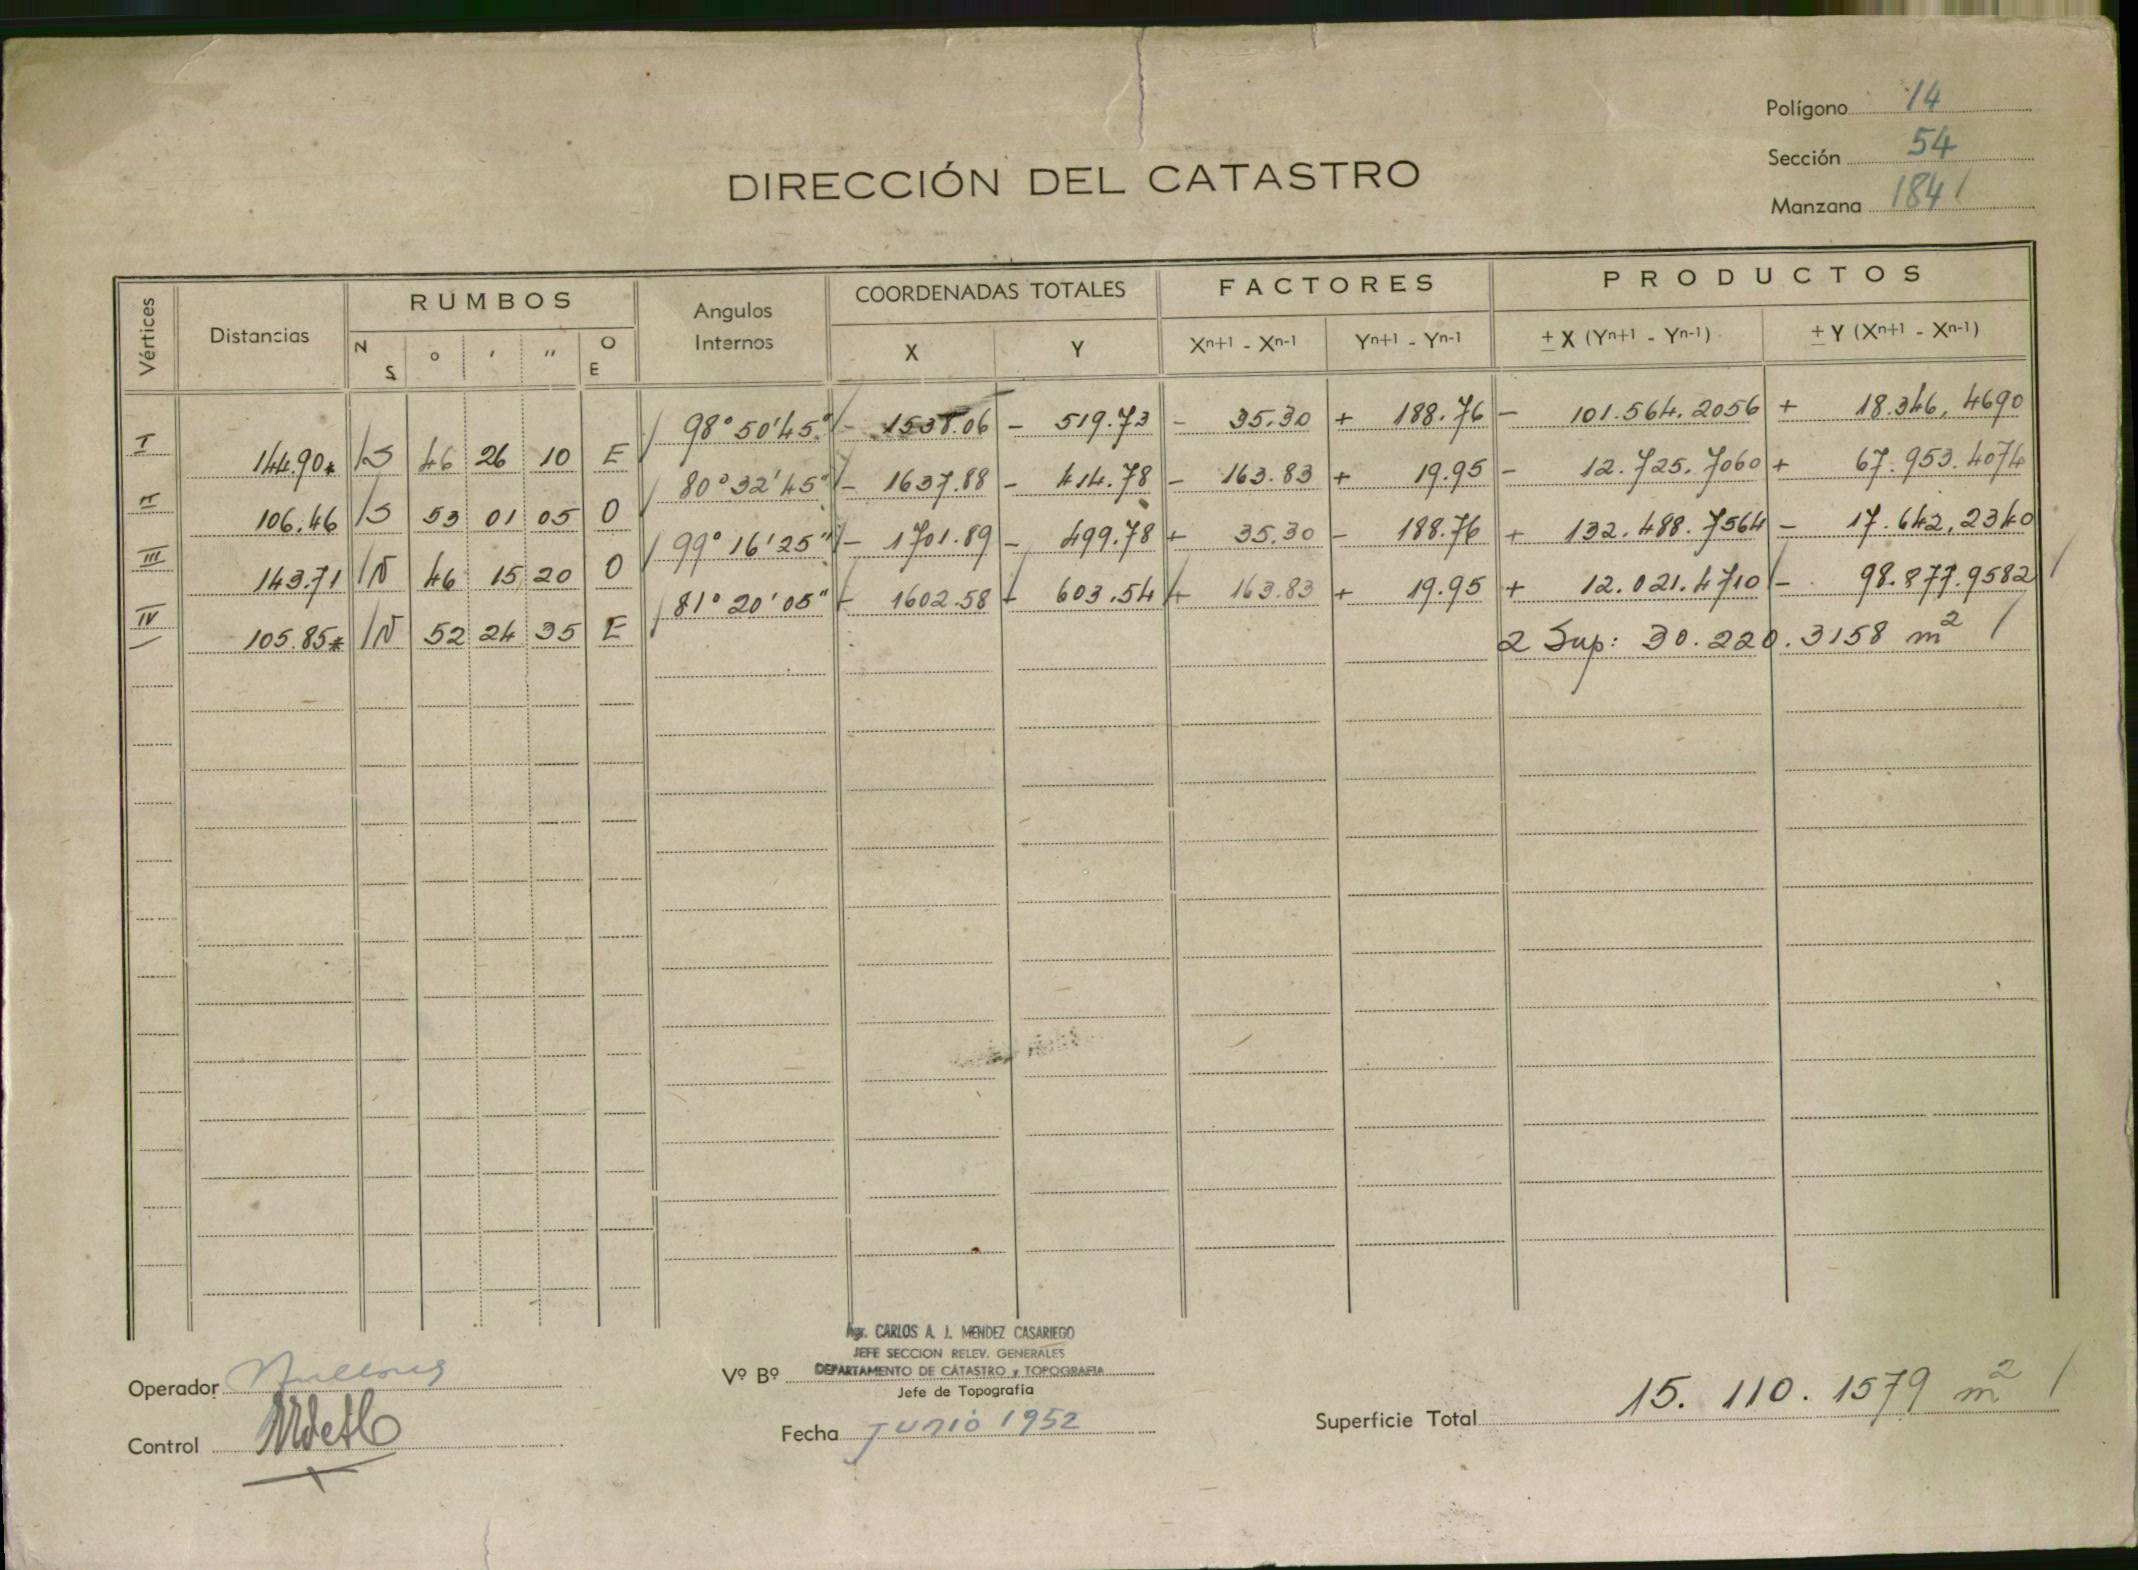 Polígono 14
Sección 54
Manzana 184 /
DIRECCIÓN DEL CATASTRO
Vértices Distancias RUMBOS Angulos Internos COORDENADAS TOTALES FACTORES PRODUCTOS
N S ° ' " O E X Y Xn+1 - Xn-1 Yn+1 - Yn-1 ± X (Yn+1 - Yn-1) ± Y (Xn+1 - Xn-1)
/ 98° 50' 45" / - 1538.06 - 519.73 - 35.30 + 188.76 - 101.564.2056 + 18.346,4690
I 144.90* / S 46 26 10 E
/ 80° 32' 45" / - 1637.88 - 414.78 - 163.83 + 19.95 - 12.725.7060 + 67.953.4074
II 106.46 / S 53 01 05 O
/ 99° 16' 25" / - 1701.89 - 499.78 + 35.30 - 188.76 + 132.488.7564 - 17.642,2340
III 143.71 / N 46 15 20 O
/ 81° 20' 05" / - 1602.58 - 603.54 / + 163.83 + 19.95 + 12.021.4710 / - 98.877.9582 /
IV 105.85* / N 52 24 35 E
2 Sup: 30.220.3158 m² /
Agr. CARLOS A. J. MENDEZ CASARIEGO
JEFE SECCION RELEV. GENERALES
Vº Bº DEPARTAMENTO DE CATASTRO y TOPOGRAFIA
Jefe de Topografía
Operador
Control
Fecha junio 1952
Superficie Total 15.110.1579 m² /